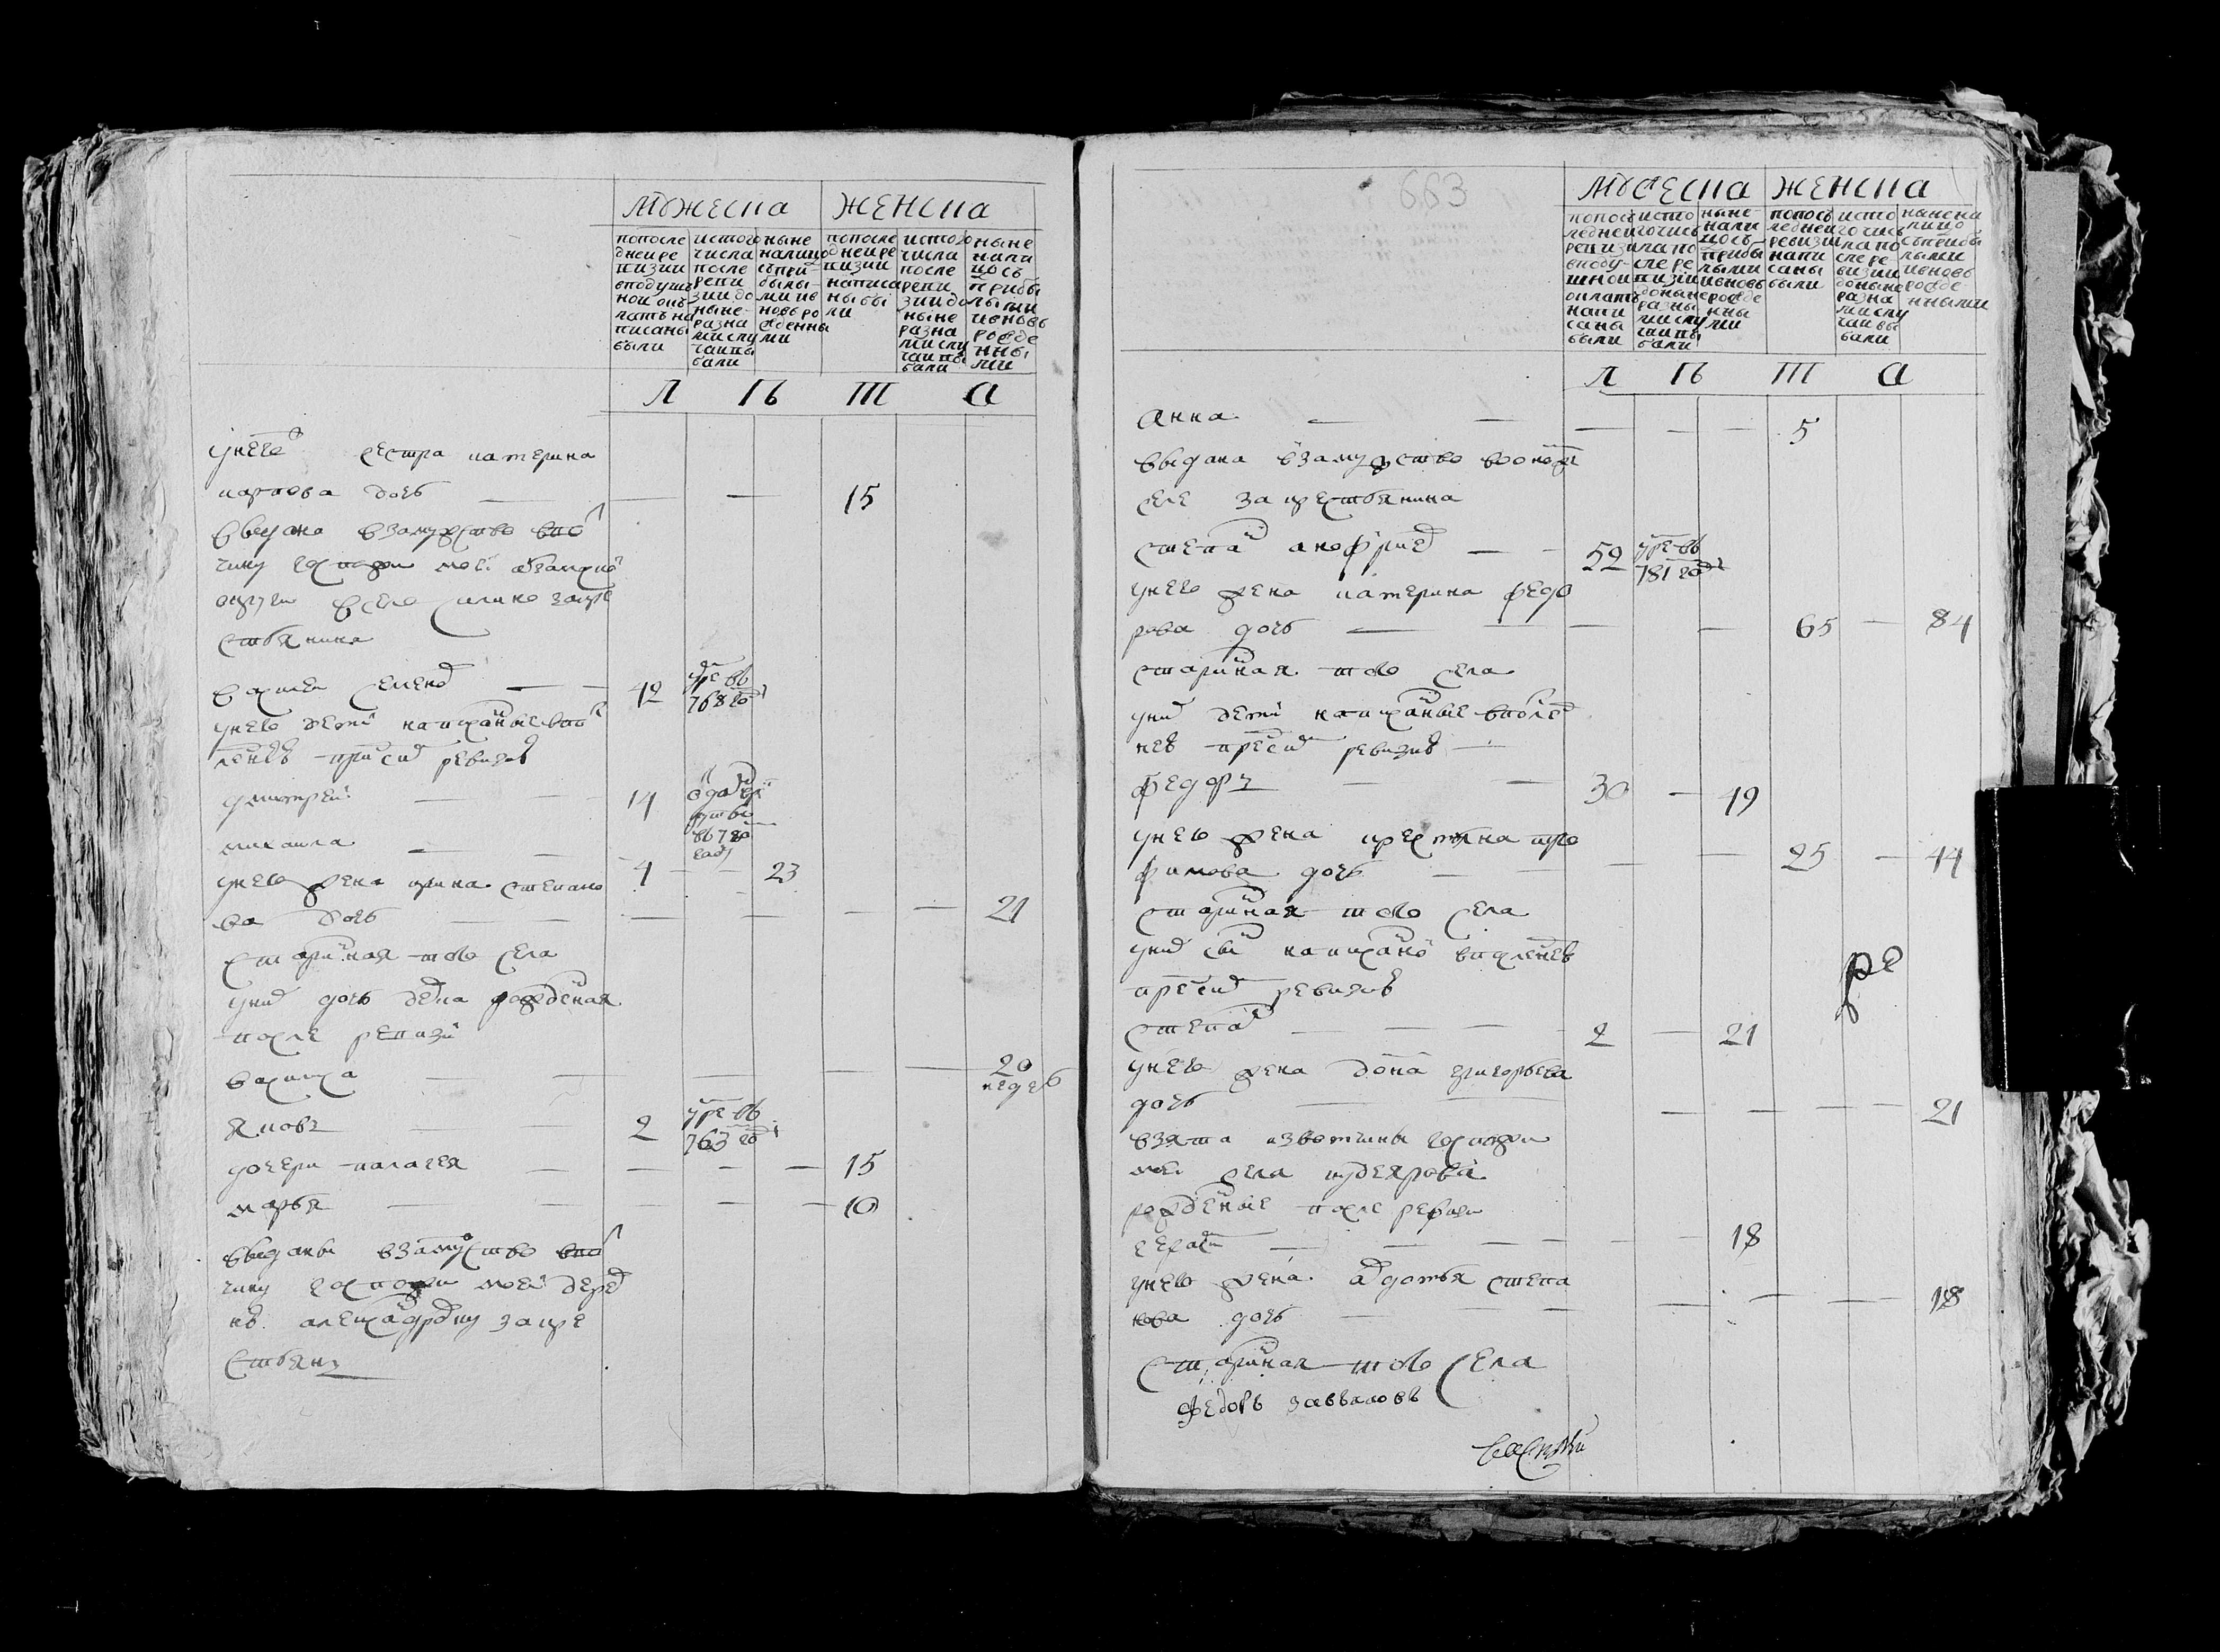 мужеска женска
попосле
дней ре
визии
вподуш
ной окъ
латъ на
писаны
были
истого
числа
после
реви
зии до
ныне
разна
ми слу
чаи вы
бали
ныне
налицо
спри
былы
ми и в
новь ро
жденны
ми
попосле
дней ре
визии
написа
ны бы
ли
истого
числа
после
реви
зии до
ныне
разна
ми слу
чаи вы
бали
ныне
нали
цо съ
прибы
лыми
ивновь
рожде
нны
ми
л ѣ т а
унего сестра катерина
карпова дочь — — — 15
выдана взамужство вво
чину госпожи моей
округи всело за кре
стьянина
василеи семенов — — 42 умре въ 768 го
унего дети написанные впо
следнеи пред сим ревизии
дмитреи — — 14 отдан в рекруты въ 7 году
михаила — — 4 — — 23
унего жена ирина степано
ва дочь — — — — — — 21
старинная того села
у них дочь девка рожденая
после ревизии
василиса — — — — — — 20 недель
яковъ — — 2 умре въ 763 го
дочери палагея — — — — 15
марья — — — — — 10
выданы взамужство вво
чину госпожи моеи дерев
нѣ александровку за кре
стьянъ
663
мужеска женска
попосъ
ледней
ревизи
вподу
шной
окладъ
напи
саны
были
исто
го числ
ла по
сле ре
визии
доныне
разны
ми слу
чаи вы
бали
ныне
нали
цось
прибы
лыми
ивновь
рожде
нны
ми
попось
ледней
ревизи
напи
саны
были
исто
го числ
ла по
сле ре
визии
доныне
разна
ми слу
чаи вы
бали
ныне на
лицо
съприбы
лыми
ивновь
рожде
нными
л ѣ т а
анна — — — — — 5
выдана взамужство во оном
селе за крестьянина
степан анофриев — — 52 умре въ 781 го
унего жена катерина федо
рова дочь — — — — 65 — 84
старинная того села
у них дети написанные впослед
неи пред сим ревизии —
федоръ — — 30 — 49
унего жена крестина тро
фимова дочь — — — — 25 — 44
старинная того села
у них сын написаной впоследнеи
пред сим ревизии
ре
степан — — — 2 — 21
унего жена домна григорьева
дочь — — — — — — 21
взята извотчины госпожи
моеи села кудеярова
рожденые после ревизи
герасим — — — — — 18
унего жена авдотья степа
нова дочь — — — — — — 18
старинная того села
Федоръ завьяловъ